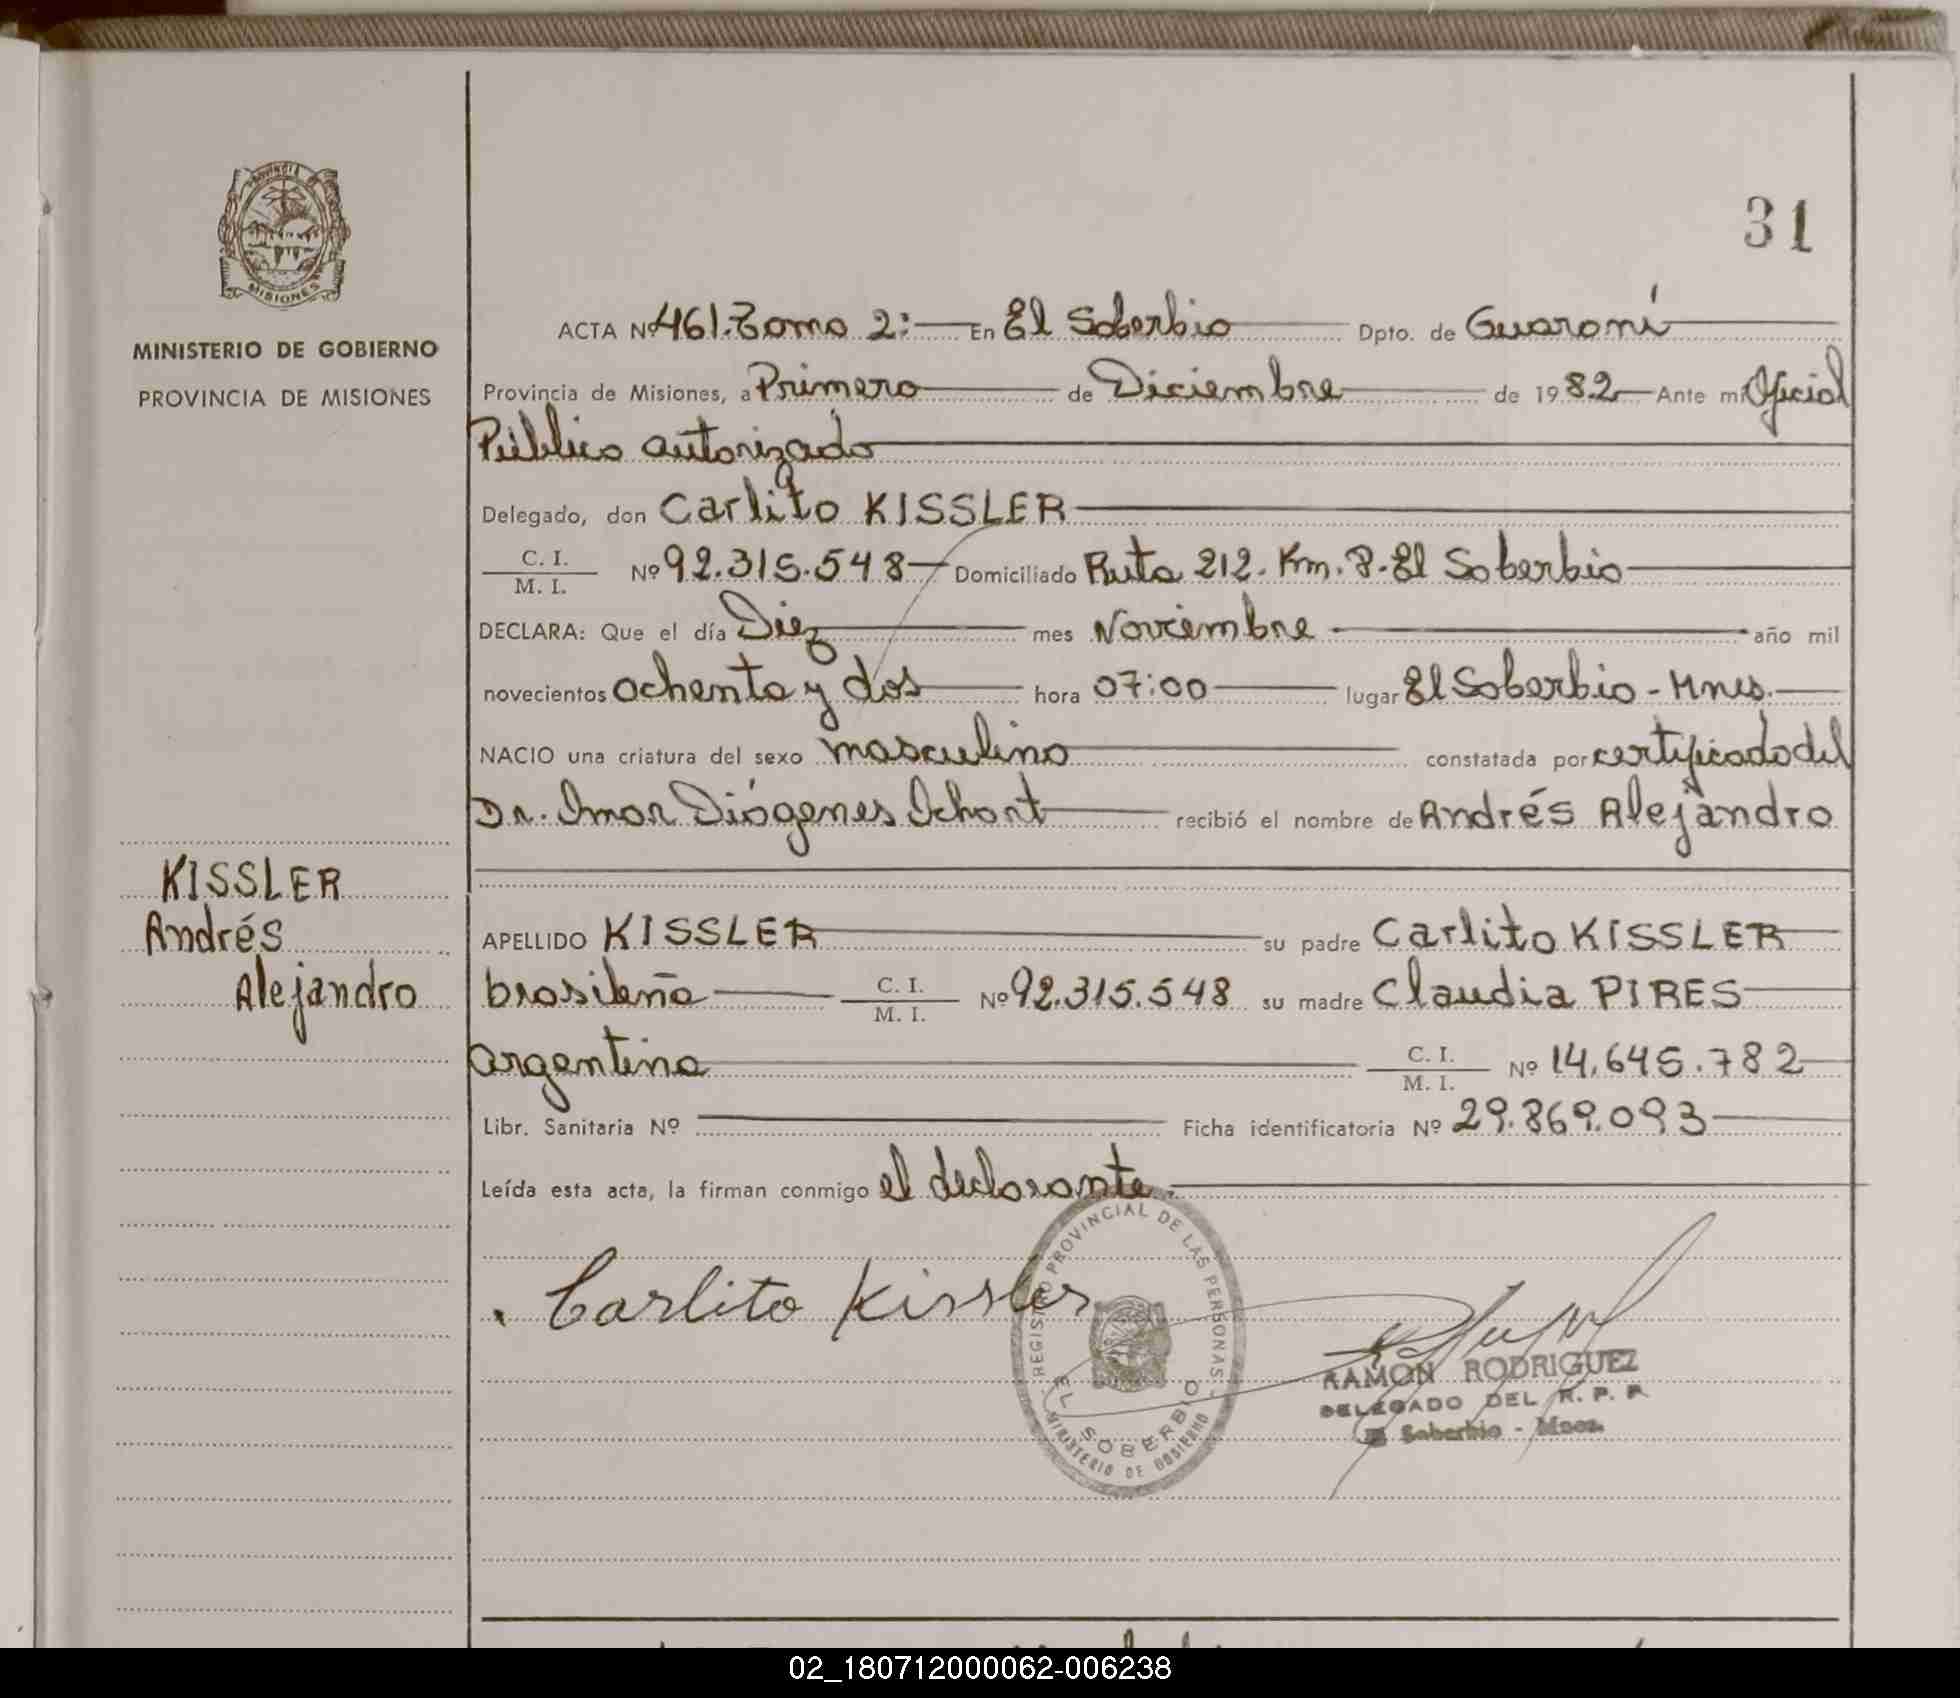 31
PROVINCIA DE
MISIONES
MINISTERIO DE GOBIERNO
PROVINCIA DE MISIONES
ACTA Nº 461. Tomo 2: En El Soberbio Dpto. de Guaraní
Provincia de Misiones, a Primero de Diciembre de 1982 Ante mi Oficial
Público autorizado
Delegado, don Carlito KISSLER
C. I.
M. I. Nº 92.315.548 Domiciliado Ruta 212. Km. 8. El Soberbio
DECLARA: Que el día Diez mes Noviembre año mil
novecientos ochenta y dos hora 07:00 lugar El Soberbio - Mnes.
NACIO una criatura del sexo masculino constatada por certificado del
Dr. Omar Diógenes Ichart recibió el nombre de Andrés Alejandro
KISSLER
Andrés
Alejandro
APELLIDO KISSLER su padre Carlito KISSLER
brasileño C. I. M. I. Nº 92.315.548 su madre Claudia PIRES
argentina C. I. M. I. Nº 14.645.782
Libr. Sanitaria Nº Ficha identificatoria Nº 29.869.093
Leída esta acta, la firman conmigo el declarante.
Carlito Kissler
REGISTRO PROVINCIAL DE LAS PERSONAS -
EL SOBERBIO
MINISTERIO DE GOBIERNO
RAMON RODRIGUEZ
DELEGADO DEL R. P. P.
Soberbio - Mnes.
02_180712000062-006238